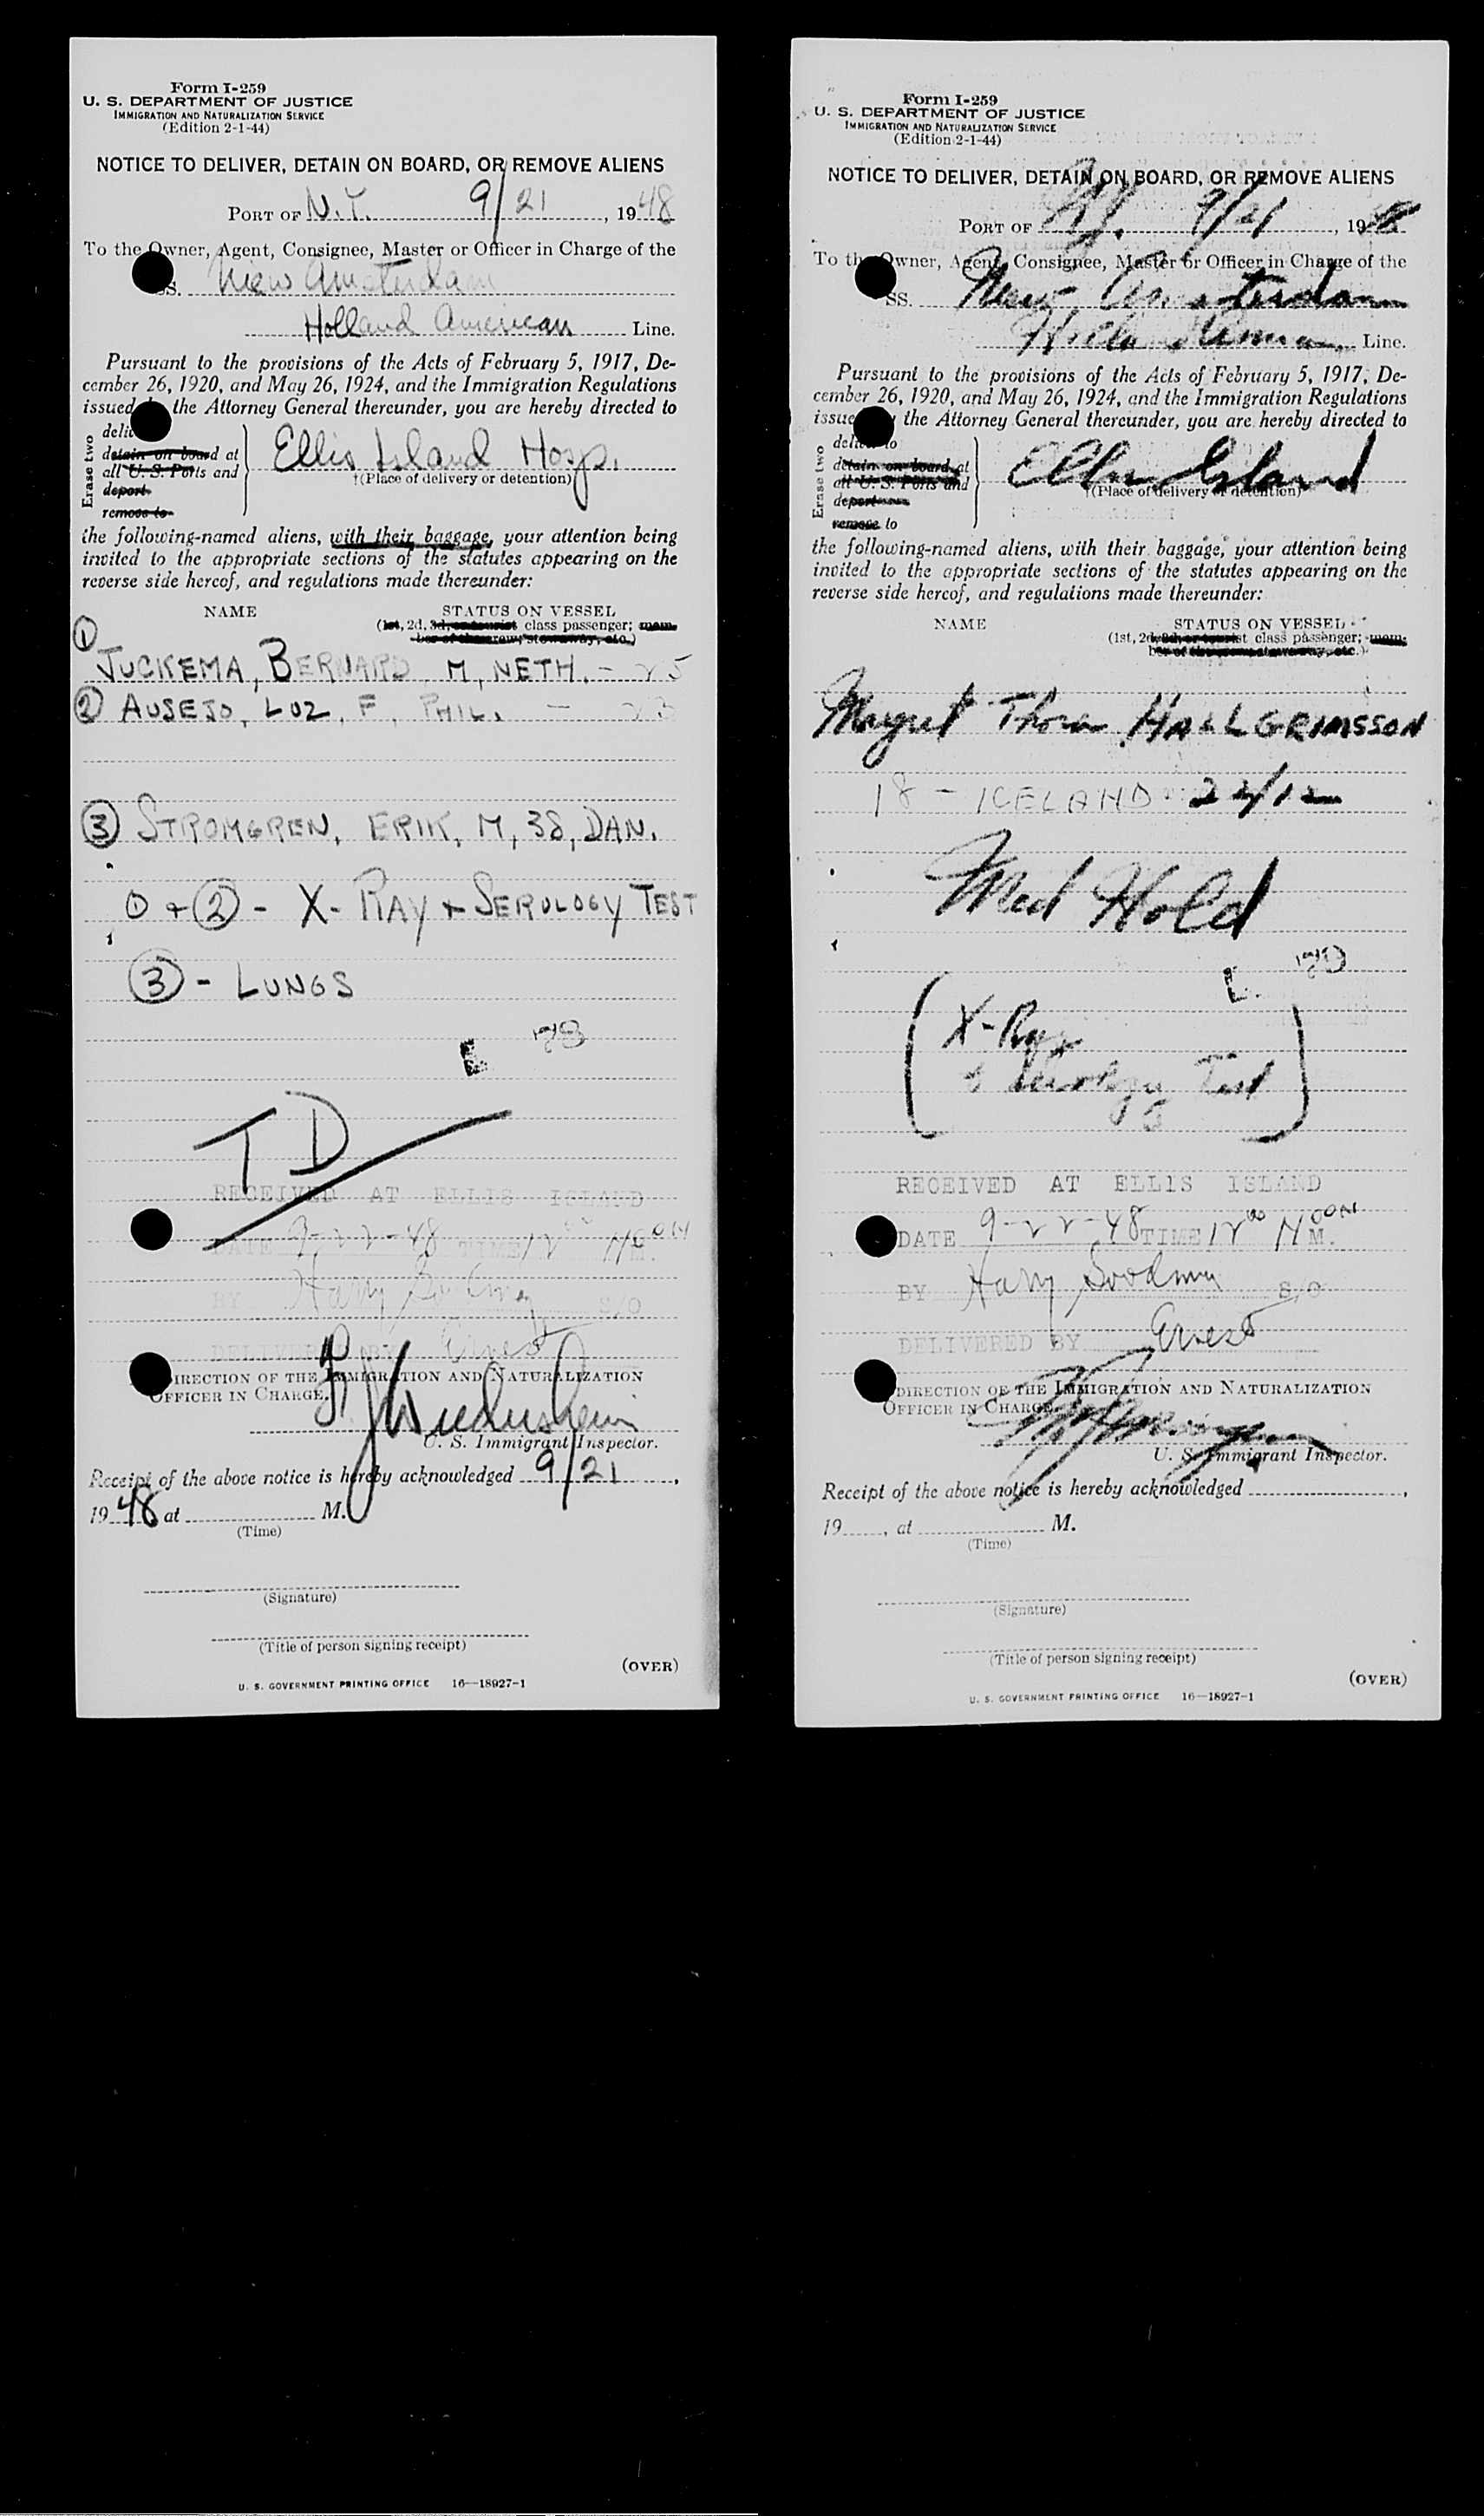 Form I-259
U. S. DEPARTMENT OF JUSTICE
IMMIGRATION AND NATURALIZATION SERVICE
(Edition 2-1-44)
NOTICE TO DELIVER, DETAIN ON BOARD, OR REMOVE ALIENS
PORT OF N.Y. 9/21, 1948
To the Owner, Agent, Consignee, Master or Officer in Charge of the
SS. New Amsterdam
Holland American Line.
Pursuant to the provisions of the Acts of February 5, 1917, De-
cember 26, 1920, and May 26, 1924, and the Immigration Regulations
issued the Attorney General thereunder, you are hereby directed to
Erase two
detain on board at
all U. S. Ports and
deport
remove to
Ellis Island Hosp.
†(Place of delivery or detention)
the following-named aliens, with their baggage, your attention being
invited to the appropriate sections of the statutes appearing on the
reverse side hereof, and regulations made thereunder:
NAME STATUS ON VESSEL
(1st, 2d, 3d, or tourist class passenger; mem-
ber of the crew; stowaway, etc.)
① JUCKEMA, BERNARD, M, NETH. - 25
② AUSEJO, LUZ, F, PHIL. - 23
③ STROMGREN, ERIK, M, 38, DAN.
① + ② - X-RAY + SEROLOGY TEST
③ - LUNGS
TD
RECEIVED AT ELLIS ISLAND
DATE 9-22-48 TIME 12 00 NOON M.
BY Harry S/O
DELIVERED BY Ernest
DIRECTION OF THE IMMIGRATION AND NATURALIZATION
OFFICER IN CHARGE.
U. S. Immigrant Inspector.
Receipt of the above notice is hereby acknowledged 9/21,
1948 at M.
(Time)
(Signature)
(Title of person signing receipt)
(OVER)
U. S. GOVERNMENT PRINTING OFFICE 16—18927-1
Form I-259
U. S. DEPARTMENT OF JUSTICE
IMMIGRATION AND NATURALIZATION SERVICE
(Edition 2-1-44)
NOTICE TO DELIVER, DETAIN ON BOARD, OR REMOVE ALIENS
PORT OF N.Y. 9/21, 1948
To the Owner, Agent, Consignee, Master or Officer in Charge of the
SS. New Amsterdam
Line.
Pursuant to the provisions of the Acts of February 5, 1917, De-
cember 26, 1920, and May 26, 1924, and the Immigration Regulations
the Attorney General thereunder, you are hereby directed to
Erase two
deliver to
detain on board at
all U. S. Ports and
deport
remove to
Ellis Island
†(Place of delivery or detention)
the following-named aliens, with their baggage, your attention being
invited to the appropriate sections of the statutes appearing on the
reverse side hereof, and regulations made thereunder:
NAME STATUS ON VESSEL
(1st, 2d, 3d, or tourist class passenger; mem-
ber of the crew; stowaway, etc.)
Margret Thora HALLGRIMSSON
18 - ICELAND - 22/12
Med Hold
(X-Ray
& Serology Test)
RECEIVED AT ELLIS ISLAND
DATE 9-22-48 TIME 12 00 NOON M.
BY Harry Goodman S/O
DELIVERED BY Ernest
DIRECTION OF THE IMMIGRATION AND NATURALIZATION
OFFICER IN CHARGE.
U. S. Immigrant Inspector.
Receipt of the above notice is hereby acknowledged ,
19 , at M.
(Time)
(Signature)
(Title of person signing receipt)
(OVER)
U. S. GOVERNMENT PRINTING OFFICE 16—18927-1